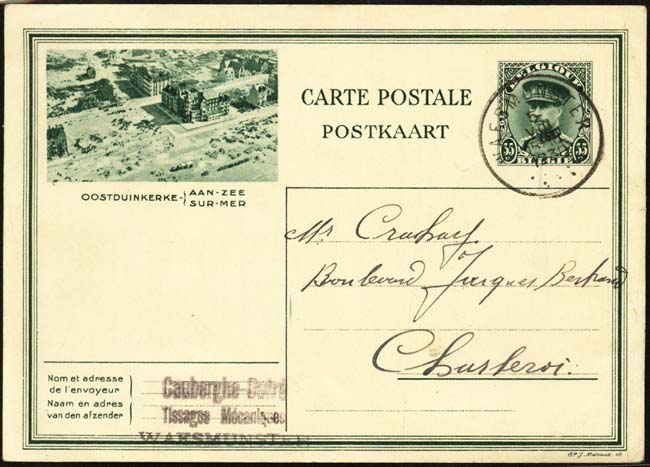 CARTE POSTALE
POSTKAART
BELGIQUE
35 35
BELGIË
OOSTDUINKERKE- AAN-ZEE
SUR-MER
Mr
Boulevard Jacques Bertrand
Charleroi.
Nom et adresse
de l'envoyeur
Naam en adres
van den afzender
Cauberghe-
Tissages Mécaniques
WAESMUNSTER